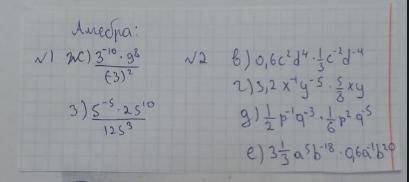 Алгебра:
√1 ж) 3⁻¹⁰ · 9⁸ / (-3)²
з) 5⁻⁵ · 25¹⁰ / 125³
√2 в) 0,6c²d⁴ · 1/3 c⁻²d⁻⁴
г) 3,2x⁻¹y⁻⁵ · 5/8 xy
д) 1/2 p⁻¹q⁻³ · 1/6 p²q⁻⁵
е) 3 1/3 a⁵b⁻¹⁸ · 0,6a⁻¹b²⁰